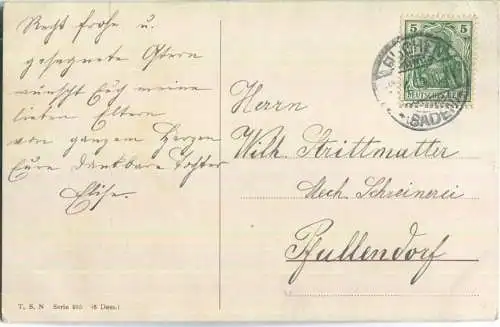 Recht frohe u.
gesegnete Ostern
wünscht Euch meine
lieben Eltern
von ganzem Herzen
Eure dankbare Tochter
Elise.
5 5
DEUTSCHES
(BADEN)
Herrn
Wilh. Strittmatter
Mech. Schreinerei
Pfullendorf
T. S. N Serie (6 Dess.)